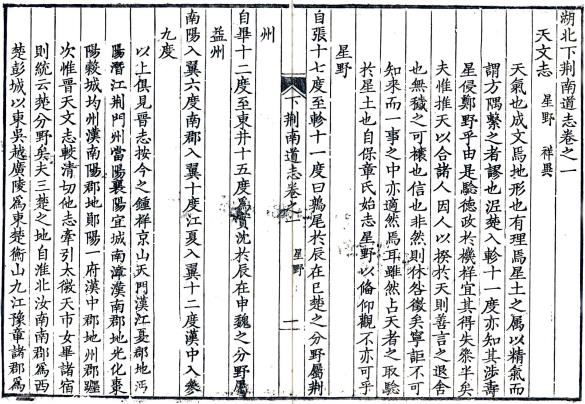 湖北下荊南道志卷之一
天文志 星野 祥異
天氣也成文焉地形也有理焉星土之属以精氣而
謂方隅繫之者謬也泥楚入軫十一度亦知其涉壽
星侵鄭野乎由是驗德政於機祥宜其得失叅半矣
夫惟推天以合諸人因人以揆於天則善言之退舍
也無穢之可禳也信也非然則休咎徵矣寧詎不可
知來而一事之中亦適然焉耳雖然占天者之取驗
於星土也自保章氏始志星野以俻仰觀不亦可乎
星野
自張十七度至軫十一度曰鶉尾於辰在巳楚之分野屬荊
下荊南道志卷之一 星野 一
州
自畢十二度至東井十五度爲實沈於辰在申魏之分野屬
益州
南陽入翼六度南郡入翼十度江夏入翼十二度漢中入參
九度
以上俱見晉志按今之鍾祥京山天門漢江夏郡地沔
陽潛江荊門州當陽襄陽宜城南漳漢南郡地光化棗
陽穀城均州漢南陽郡地鄖陽一府漢中郡地州郡躔
次惟晉天文志較清切他志牽引太微天市女畢諸宿
則統云楚分野矣夫三楚之地自淮北汝南南郡爲西
楚彭城以東吳越廣陵爲東楚衡山九江豫章諸郡爲